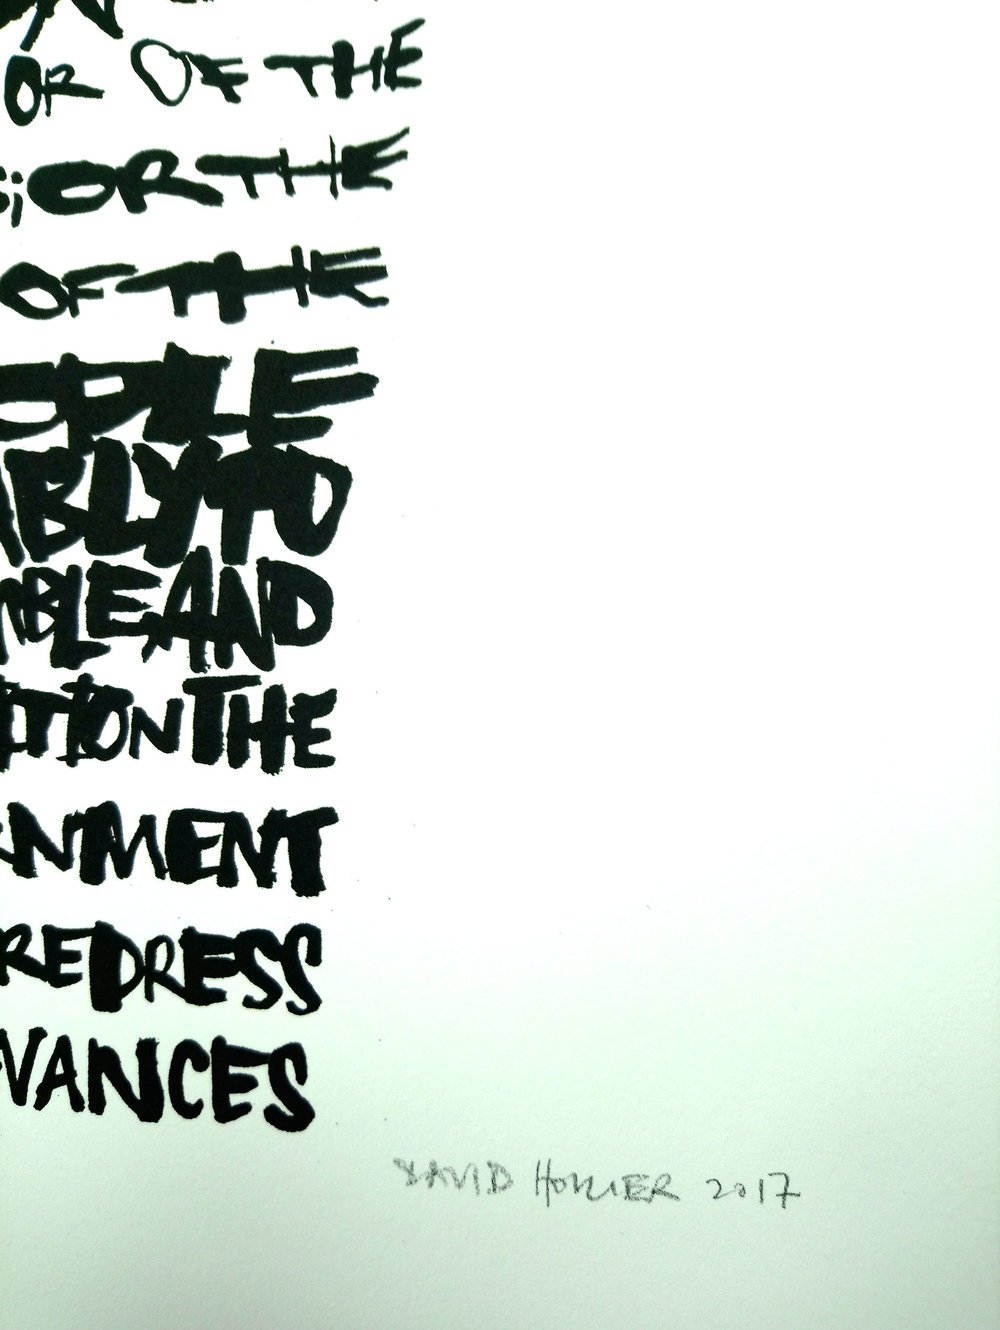 OR OF THE
; OR THE
OF THE
OPLE
ABLY TO
MBLE, AND
ITION THE
RNMENT
REDRESS
VANCES
DAVID HOLLIER 2017